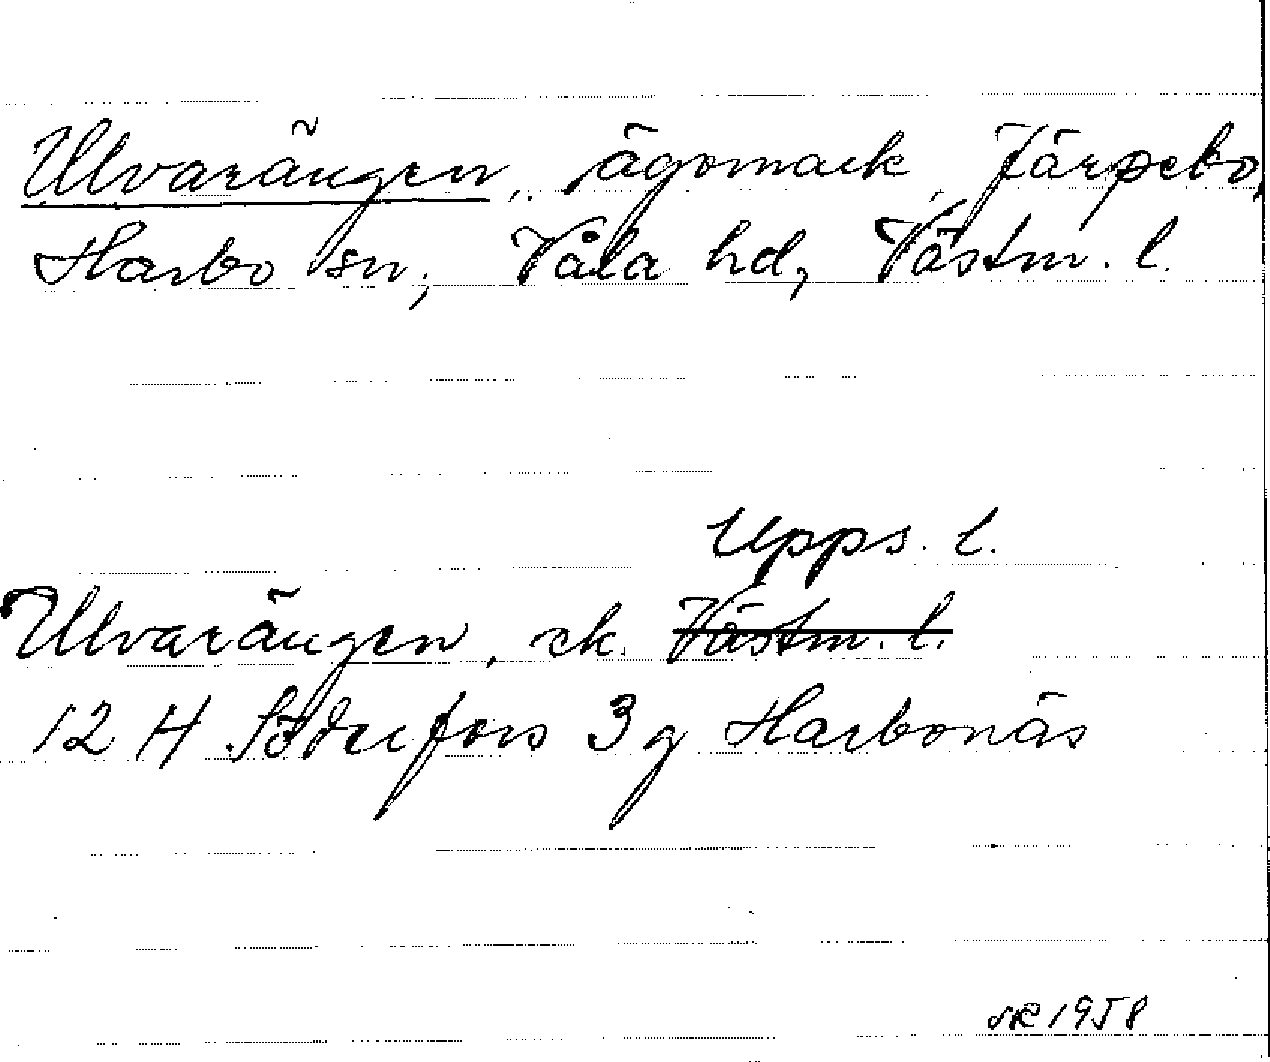 Ulvarängen, ägomark, Järpebo,
Harbo sn, Våla hd, Västm. l.
Upps. l.
Ulvarängen, ek. Västm. l.
12 H Söderfors 3 g Harbonäs
1958